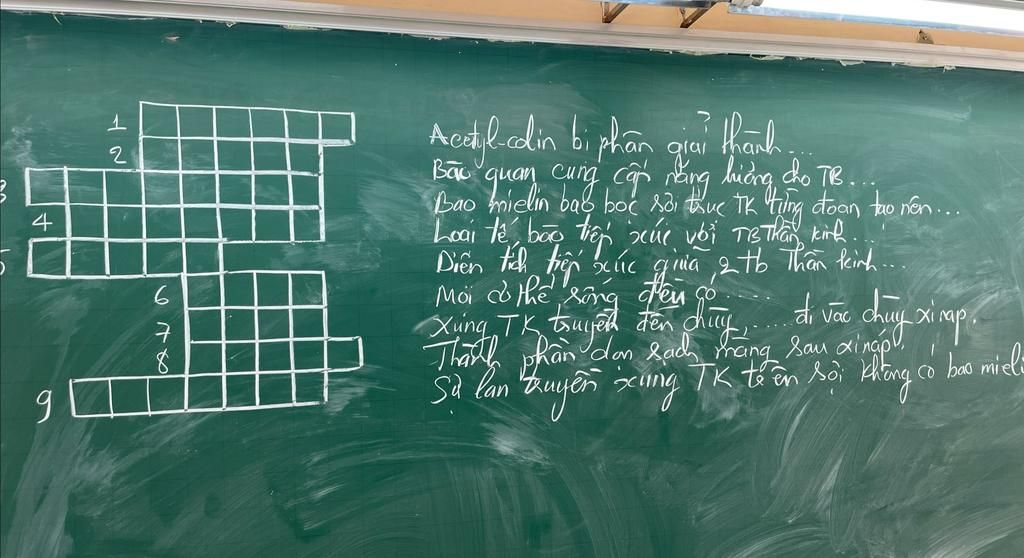 1
2
3
4
5
6
7
8
9
Acetyl-colin bị phân giải thành...
Bào quan cung cấp năng lượng cho TB...
Bao mielin bao bọc sợi trục TK từng đoạn tạo nên...
Loại tế bào tiếp xúc với TB Thần kinh...
Diện tích tiếp xúc giữa 2 tb Thần kinh...
Mọi cơ thể sống đều có.......
Xung TK truyền đến chùy, ..... đi vào chùy xinap.
Thành phần dọn sạch màng sau xinap
Sự lan truyền xung TK trên sợi không có bao mieli